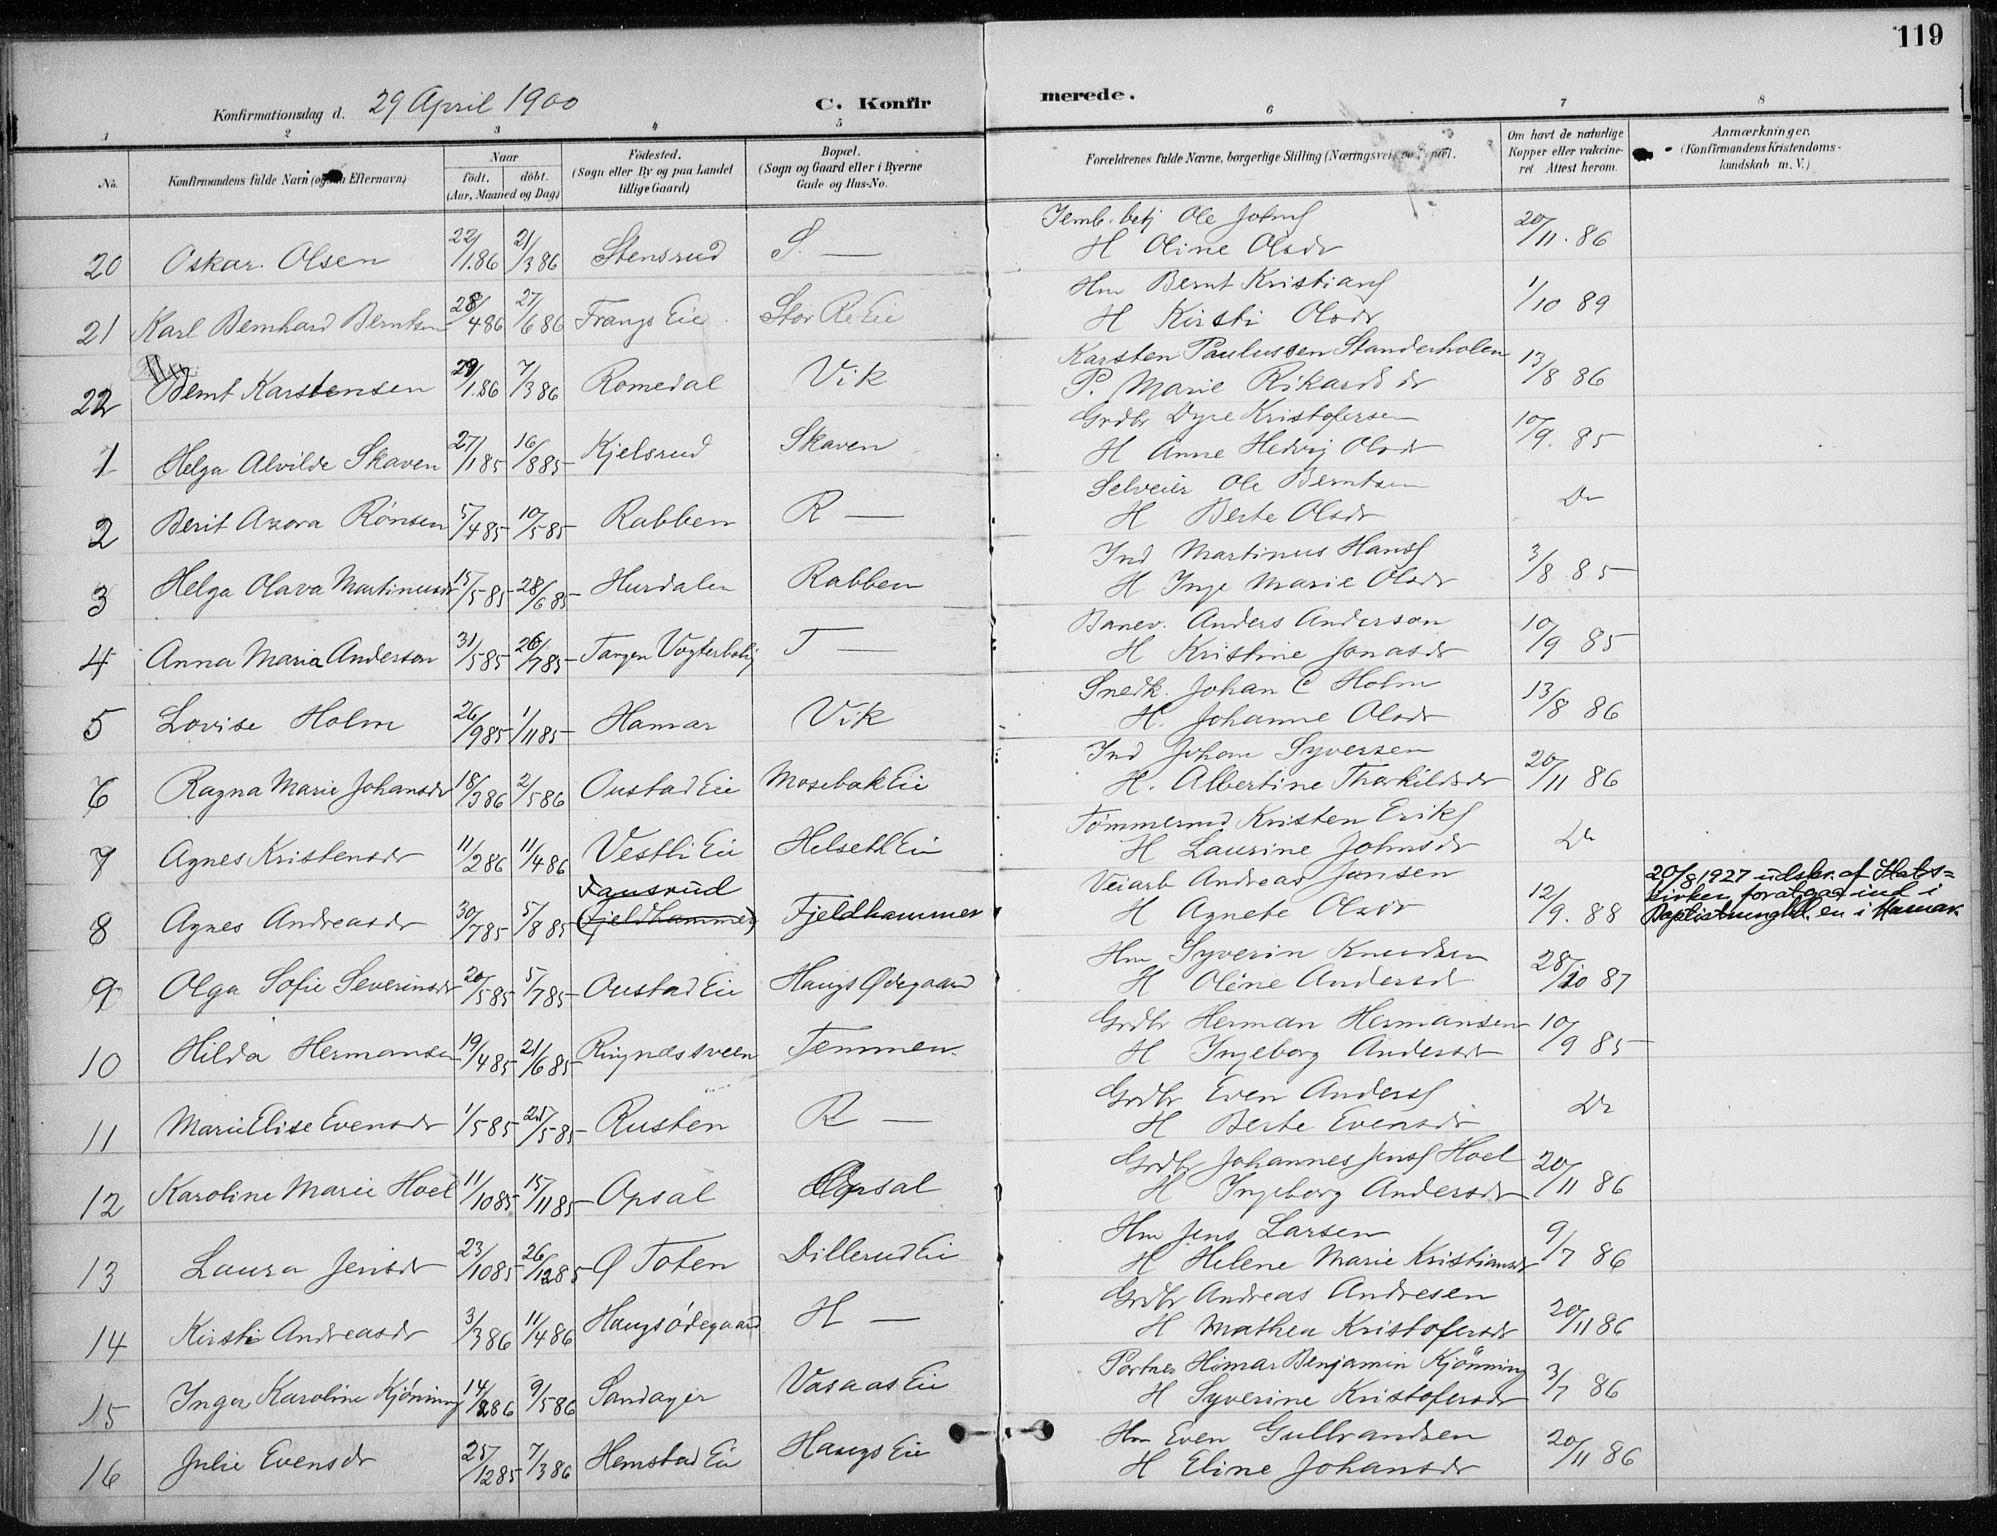 119
Konfirmationsdag d. 29 April 1900 C. Konfirmerede.
1 2 3 4 5 6 7 8
No. Konfirmandens fulde Navn (ogsaa Efternavn) Naar født. døbt. (Aar, Maaned og Dag) Fødested. (Sogn eller By og paa Landet tillige Gaard) Bopæl. (Sogn og Gaard eller i Byerne Gade og Hus-No. Forældrenes fulde Navne, borgerlige Stilling (Næringsvei) og Bopæl. Om havt de naturlige Kopper eller vakcineret Attest herom. Anmærkninger. (Konfirmandens Kristendomskundskab m. V.)
20 Oskar Olsen 22/1.86 21/3 86 Stensrud S. — Jernb. betj Ole Johns
H Oline Olsdr 20/11. 86
21 Karl Bernhard Berntsen 28/4 86 27/6 86 Frangs Eie Stor Re Eie Hm Bernt Kristians
H Kirsti Olsdr 1/10 89
22 Bernt Karstensen 29/1.86 7/3 86 Romedal Vik Karsten Paulussen Standerholen
P. Marie Rikardsdr 13/8 86
1 Helga Alvilde Skaven 27/1 85 16/8 85 Kjelsrud Skaven Grdbr Dyre Kristofersen
H Anne Hedvig Olsdr 10/9. 85
2 Berit Azora Rønsen 5/4 85 10/5 85 Rabben R — Selveier Ole Berntsen
H Berte Olsdr Do
3 Helga Olava Martinusdr 15/5 85 28/6 85 Hurdalen Rabben Ind Martinus Hans
H Inge Marie Olsdr 3/8 85
4 Anna Maria Anderson 31/5 85 26/7 85 Tangen Vogterbolig T — Banev. Anders Anderson
H Kristine Jonasdr 10/9 85
5 Lovise Holm 26/9 85 1/11 85 Hamar Vik Snedk. Johan C Holm
H. Johanne Olsdr 13/8 86
6 Ragna Marie Johansdr 18/3 86 2/5 86 Oustad Eie Mosebak Eie Ind Johan Syversen
H. Albertine Thorkildsdr 20/11 86
7 Agnes Kristensdr 11/2 86 11/4 86 Vestli Eie Helseth Eie Tømmermd Kristen Eriks
H Laurine Johnsdr Do
8 Agnes Andreasdr 30/7 85 5/8 85 Fansrud (Fjeldhammer) Fjeldhammer Veiarb Andreas Jonsen
H Agnete Olsdr 12/9. 88 20/8 1927 udskr. af Stats=
kirken for at gaa ind i
Baptistmenigh. en i Hamar
9 Olga Sofie Severinsdr 20/5 85 5/7 85 Oustad Eie Haugs Ødegaard Hm Syverin Knudsen
H Oline Andersd 28/10 87
10 Hilda Hermansen 19/4 85 21/6 85 Ringnæssveen Temmen Grdbr Herman Hermansen
H Ingeborg Andersdr 10/9 85
11 Marie Elise Evensdr 1/5 85 25/5 85 Rusten R — Grdbr Even Anders
H Berte Evensdr Do
12 Karoline Marie Hoel 11/10 85 15/11 85 Opsal Opsal Grdbr Johannes Jens Hoel
H Ingeborg Andersdr 20/11 86
13 Laura Jensdr 23/10 85 26/12 85 Ø Toten Dillerud Eie Hm Jens Larsen
H Helene Marie Kristiansdr 9/7 86
14 Kirsti Andreasdr 3/3 86 11/4 86 Haugsødegaard H — Grdbr Andreas Andresen
H Mathea Kristofersdr 20/11 86
15 Inga Karoline Kjønning 14/2 86 9/5 86 Sandager Vasaas Eie Portner Hilmar Benjamin Kjønning
H Syverine Kristofersdr 3/7 86
16 Julie Evensdr 25/12 85 7/3 86 Hemstad Eie Haugs Eie Hm Even Gulbrandsen
H Eline Johansdr 20/11 86